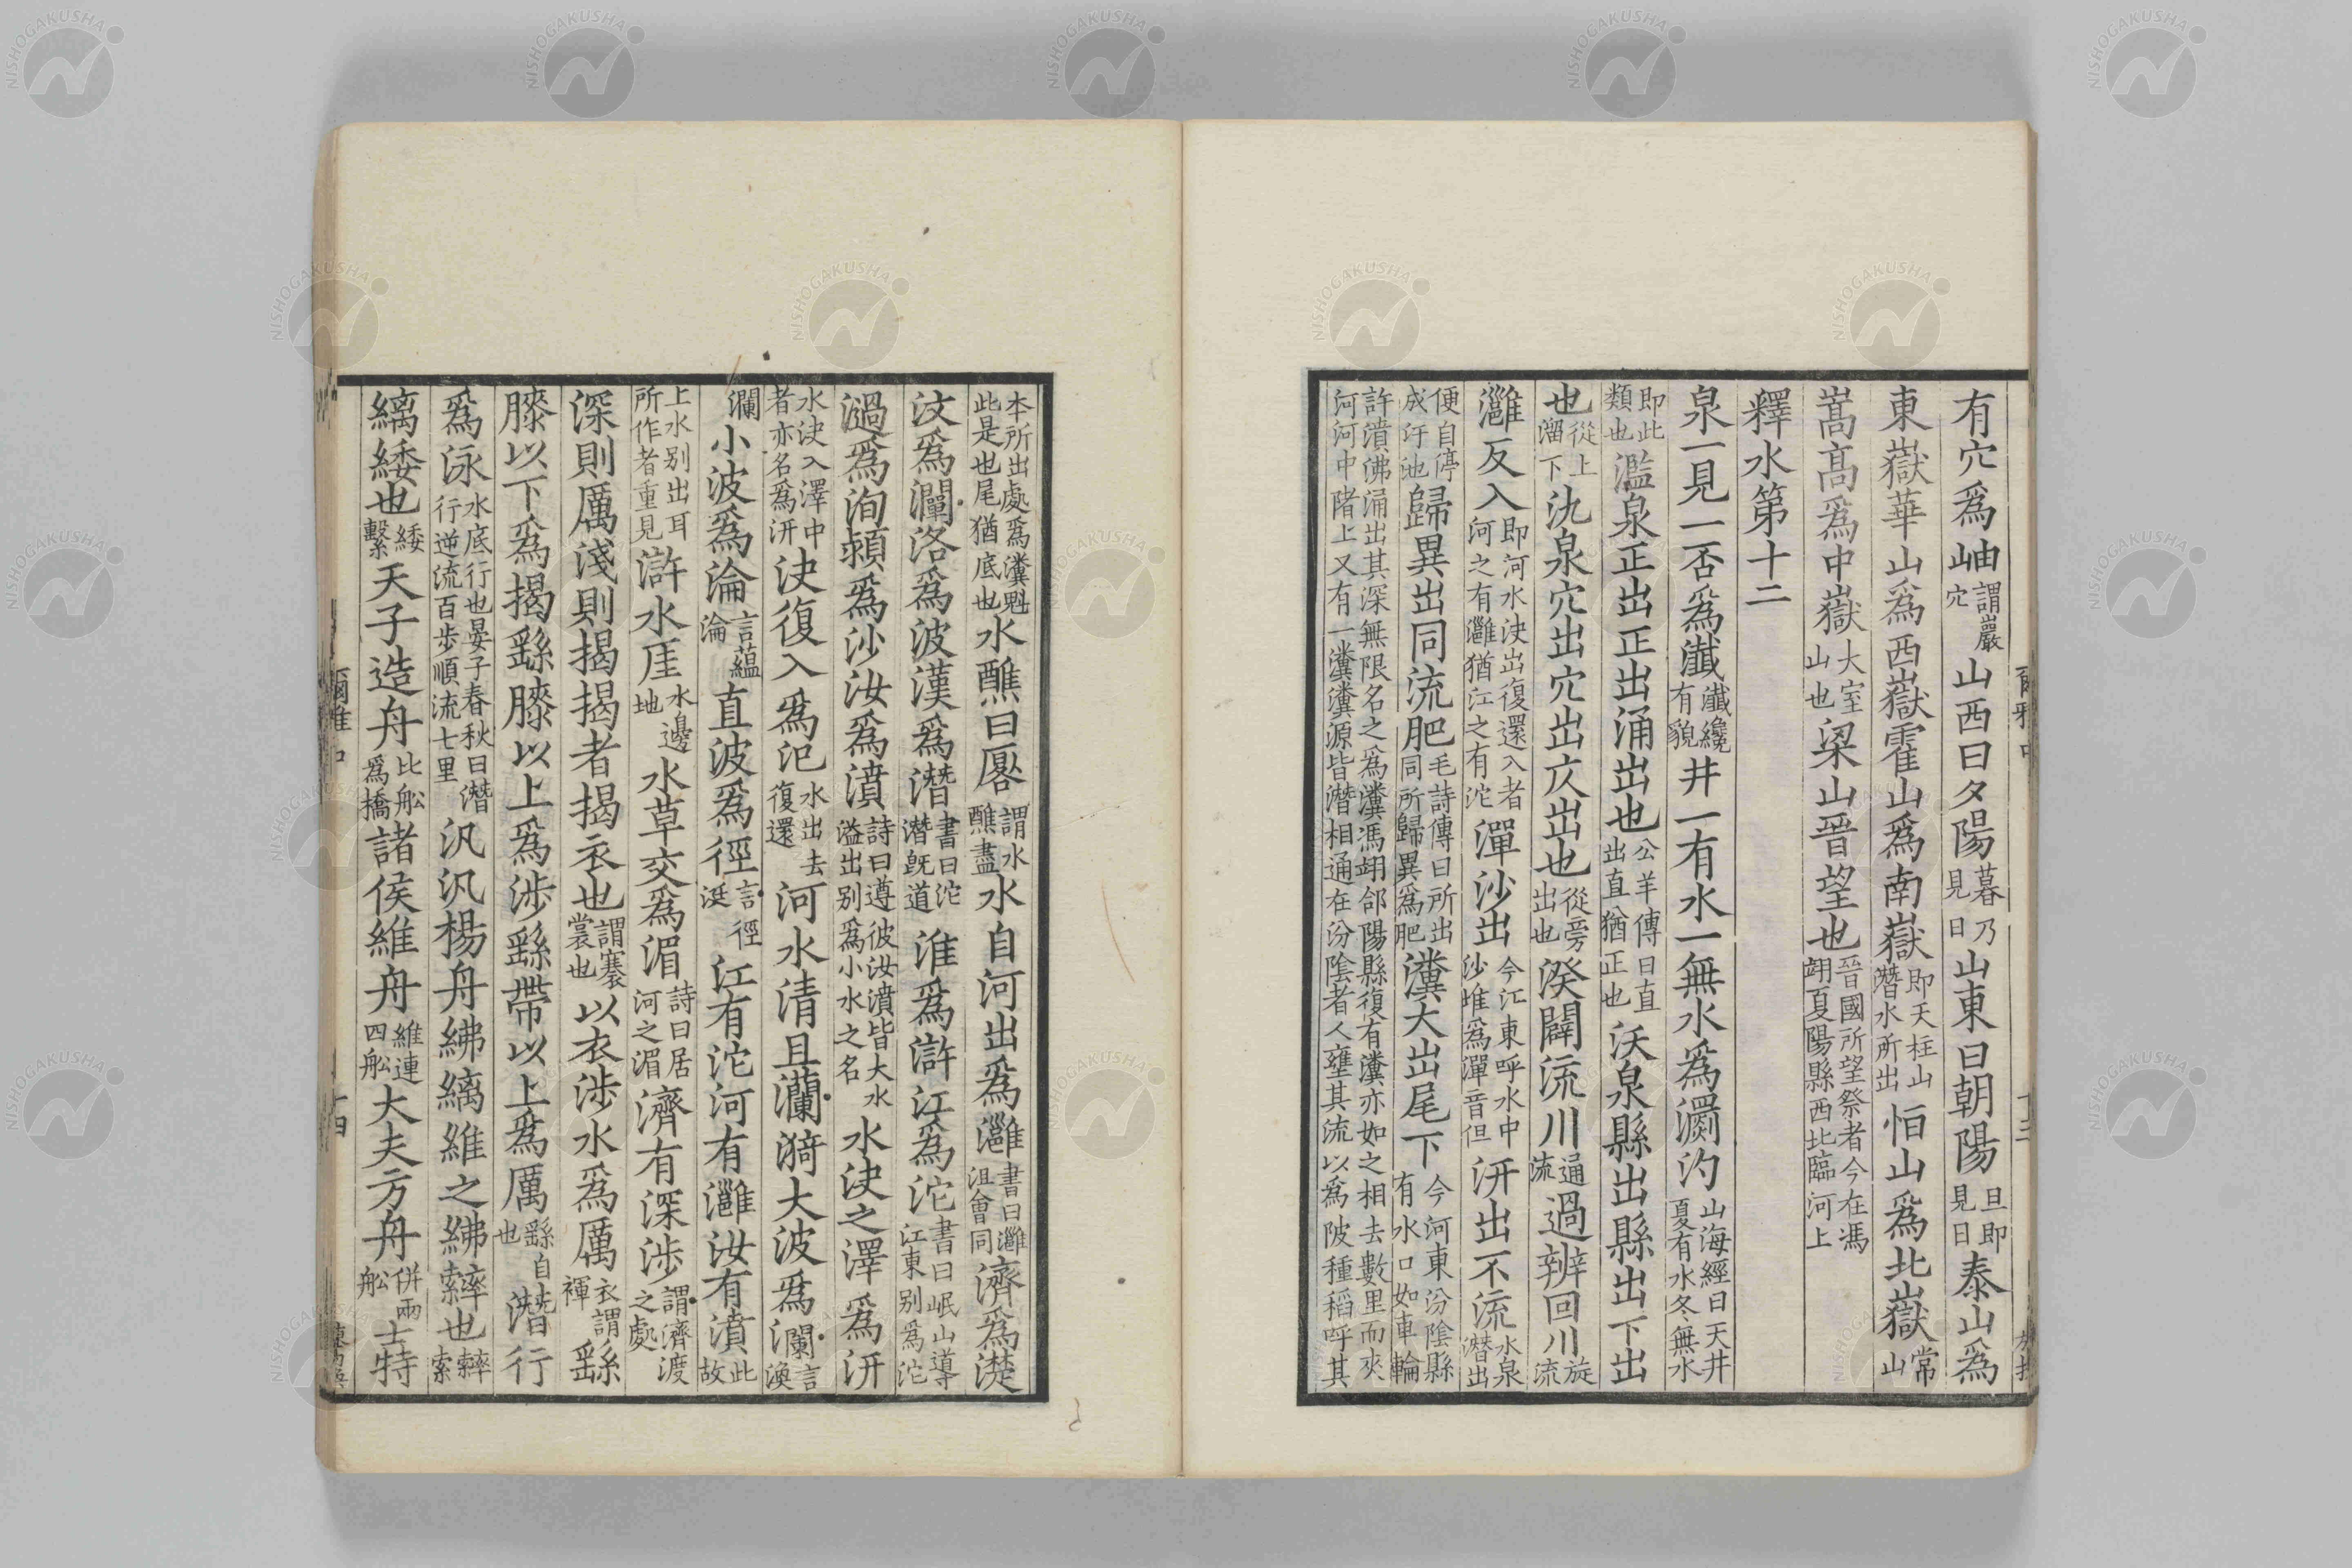 有穴爲岫謂巖穴山西曰夕陽暮乃見日山東曰朝陽旦即見日泰山爲
東嶽華山爲西嶽霍山爲南嶽即天柱山潛水所出恒山爲北嶽常山
嵩高爲中嶽大室山也梁山晉望也晉國所望祭者今在馮翊夏陽縣西北臨河上
釋水第十二
泉一見一否爲瀸瀸纔有貌井一有水一無水爲瀱汋山海經曰天井夏有水冬無水
即此類也濫泉正出正出涌出也公羊傳曰直出直猶正也沃泉縣出縣出下出
也從上溜下氿泉穴出穴出仄出也從旁出也湀闢流川通流過辨回川旋流
灉反入即河水決出復還入者河之有灉猶江之有沱潬沙出今江東呼水中沙堆爲潬音但汧出不流水泉潛出
便自停成汙池歸異出同流肥毛詩傳曰所出同所歸異爲肥瀵大出尾下今河東汾陰縣有水口如車輪
許濆沸涌出其深無限名之爲瀵馮翊郃陽縣復有瀵亦如之相去數里而夾河河中陼上又有一瀵瀵源皆潛相通在汾陰者人壅其流以爲陂種稻呼其
爾雅中
十三
本所出處爲瀵魁此是也尾猶底也水醮曰厬謂水醮盡水自河出爲灉書曰灉沮會同濟爲濋
汶爲瀾洛爲波漢爲潛書曰沱潛旣道淮爲滸江爲沱書曰岷山導江東别爲沱
濄爲洵潁爲沙汝爲濆詩曰遵彼汝濆皆大水溢出别爲小水之名水決之澤爲汧
水決入澤中者亦名爲汧決復入爲汜水出去復還河水清且灡漪大波爲瀾言渙
瀾小波爲淪言蘊淪直波爲徑言徑涏江有沱河有灉汝有濆此故
上水别出耳所作者重見滸水厓水邊地水草交爲湄詩曰居河之湄濟有深涉謂濟渡之處
深則厲淺則揭揭者揭衣也謂褰裳也以衣涉水爲厲衣謂褌繇
膝以下爲揭繇膝以上爲涉繇帶以上爲厲繇自也潛行
爲泳水底行也晏子春秋曰潛行逆流百步順流七里汎汎楊舟紼縭維之紼䋎也䋎索
縭緌也緌繫天子造舟比舩爲橋諸侯維舟維連四舩大夫方舟併兩舩士特
爾雅中
十四